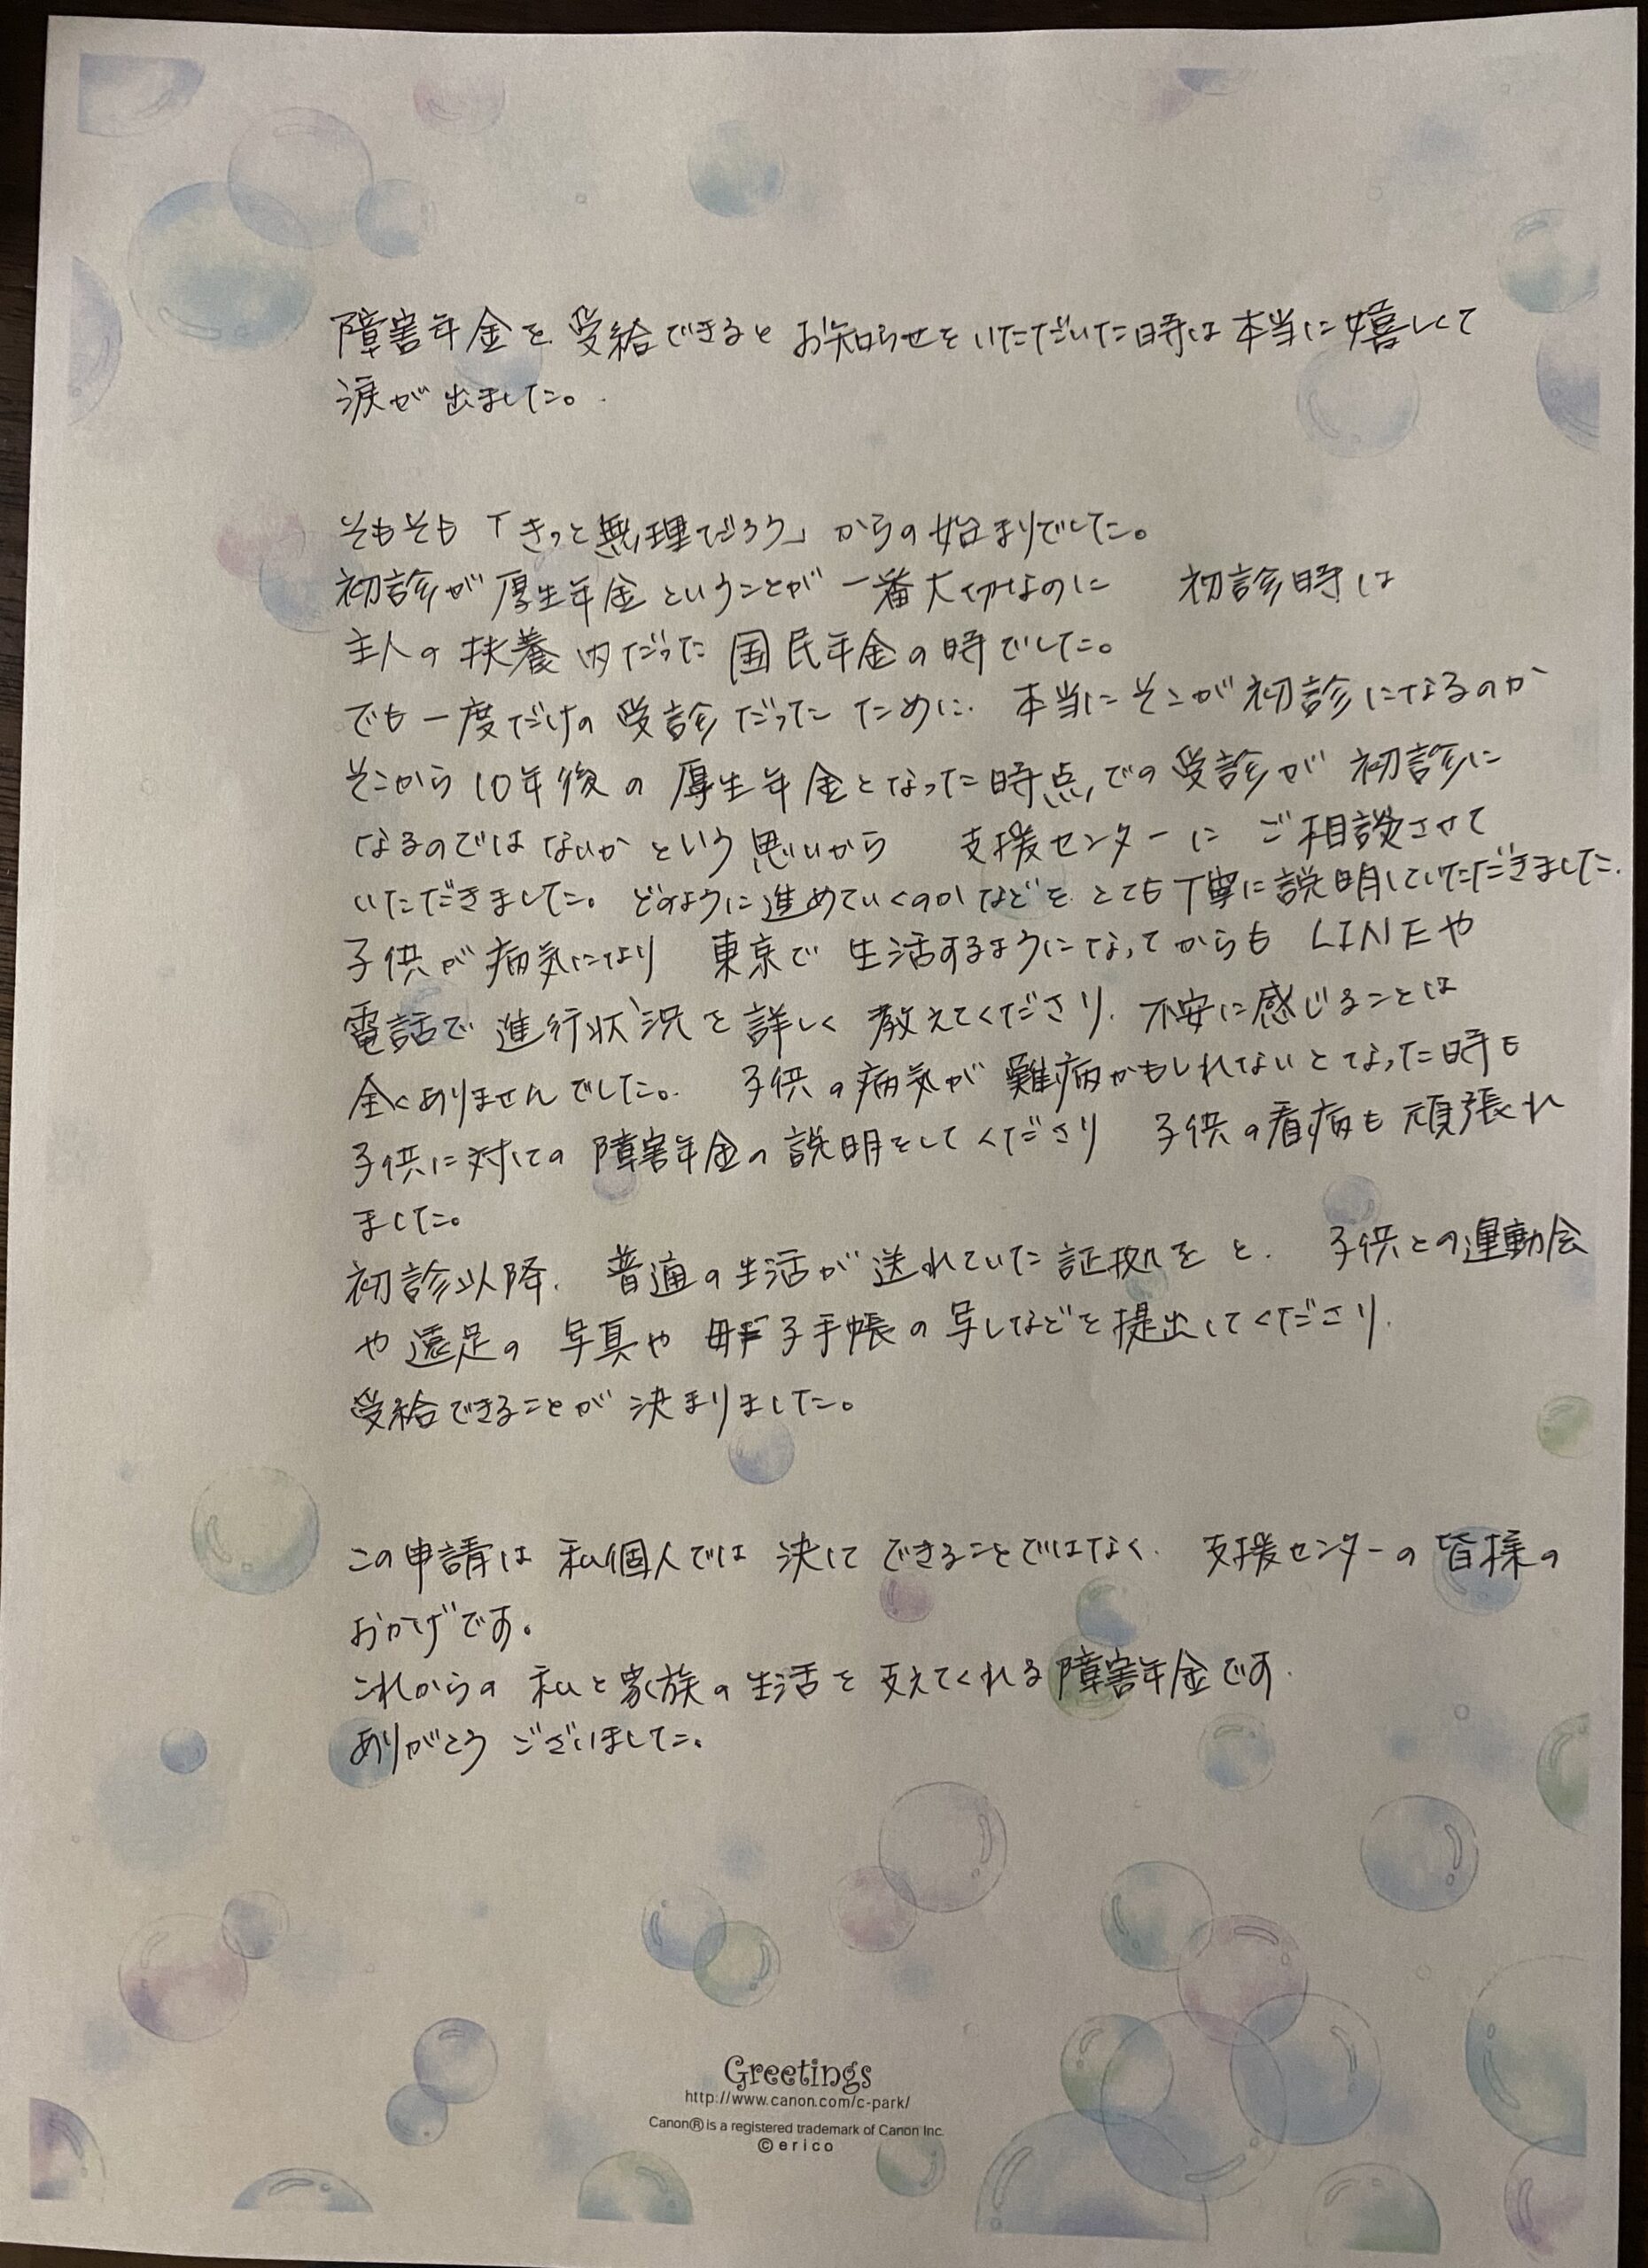 障害年金を受給できるとお知らせをいただいた時は本当に嬉しくて
涙が出ました。
そもそも「きっと無理だろう」からの始まりでした。
初診が厚生年金ということが一番大切なのに 初診時は
主人の扶養内だった国民年金の時でした。
でも一度だけの受診だったために、本当にそこが初診になるのか
そこから10年後の厚生年金となった時点での受診が初診に
なるのではないかという思いから 支援センターにご相談させて
いただきました。どのように進めていくのかなどをとても丁寧に説明していただきました。
子供が病気になり 東京で生活するようになってからもLINEや
電話で進行状況を詳しく教えてくださり、不安に感じることは
全くありませんでした。 子供の病気が難病かもしれないとなった時も
子供に対しての障害年金の説明をしてくださり 子供の看病も頑張れ
ました。
初診以降、普通の生活が送れていた証拠をと、子供との運動会
や遠足の写真や母子手帳の写しなどを提出してくださり、
受給できることが決まりました。
この申請は私個人では決してできることではなく、支援センターの皆様の
おかげです。
これからの私と家族の生活を支えてくれる障害年金です。
ありがとうございました。
Greetings
http://www.canon.com/c-park/
Canon® is a registered trademark of Canon Inc.
©erico